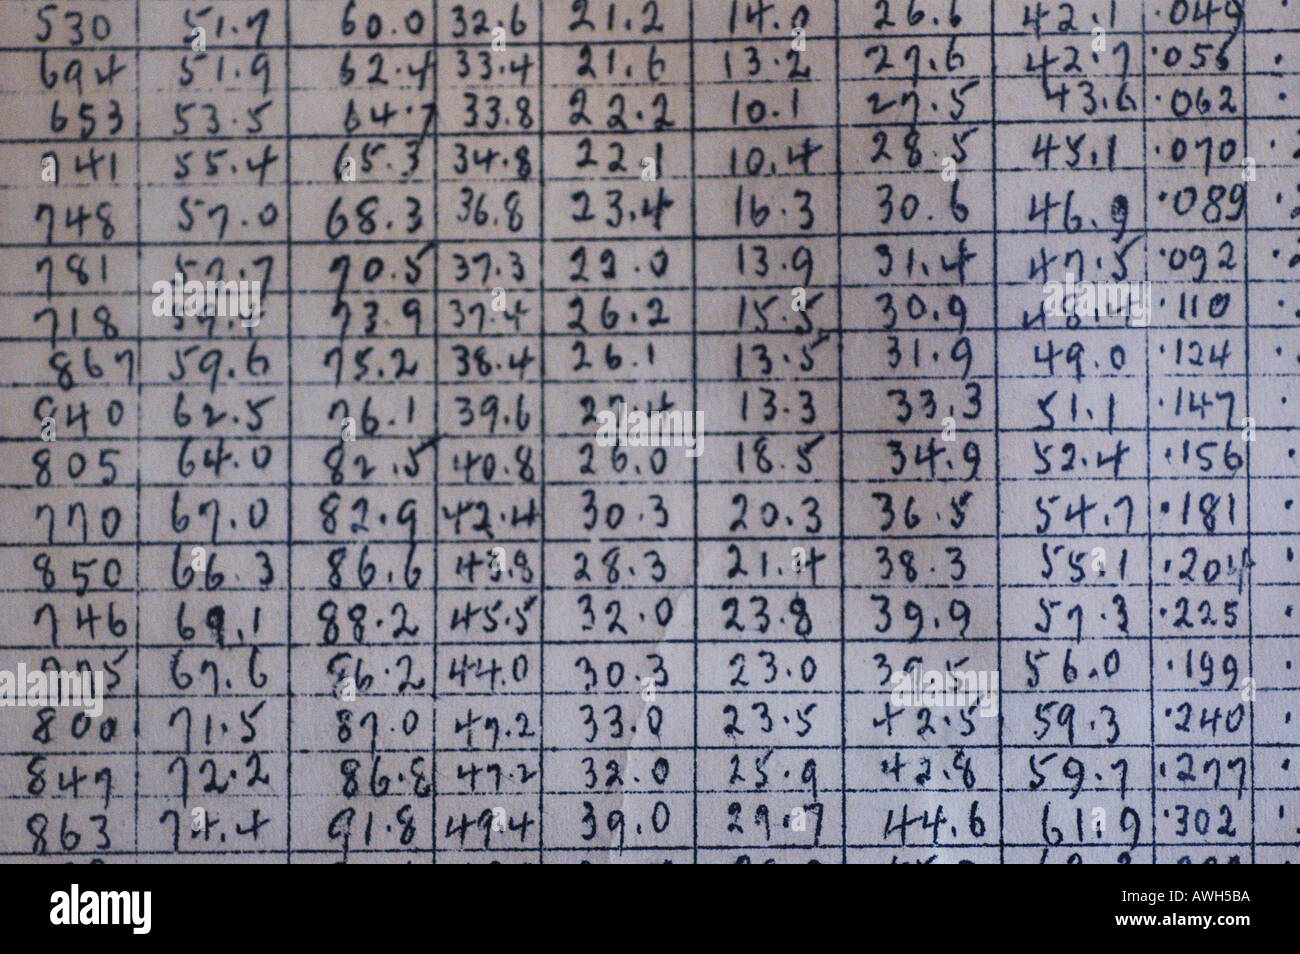 530 51.7 60.0 32.6 21.2 14.0 26.6 42.1 .049
694 51.9 62.4 33.4 21.6 13.2 27.6 42.7 .056
653 53.5 64.7 33.8 22.2 10.1 27.5 43.6 .062
741 55.4 65.3 34.8 22.1 10.4 28.5 45.1 .070
748 57.0 68.3 36.8 23.4 16.3 30.6 46.9 .089
781 57.7 70.5 37.3 22.0 13.9 31.4 47.5 .092
718 73.9 37.4 26.2 15.5 30.9 48.4 .110
867 59.6 75.2 38.4 26.1 13.5 31.9 49.0 .124
840 62.5 76.1 39.6 27.4 13.3 33.3 51.1 .147
805 64.0 82.5 40.8 26.0 18.5 34.9 52.4 .156
770 67.0 82.9 42.4 30.3 20.3 36.5 54.7 .181
850 66.3 86.6 43.8 28.3 21.4 38.3 55.1 .204
746 69.1 88.2 45.5 32.0 23.8 39.9 57.3 .225
775 67.6 86.2 44.0 30.3 23.0 37.5 56.0 .199
800 71.5 87.0 47.2 33.0 23.5 42.5 59.3 .240
847 72.2 86.8 47.2 32.0 25.9 42.8 59.7 .277
863 74.4 91.8 49.4 39.0 29.7 44.6 61.9 .302
alamy
Image ID: AWH5BA
www.alamy.com